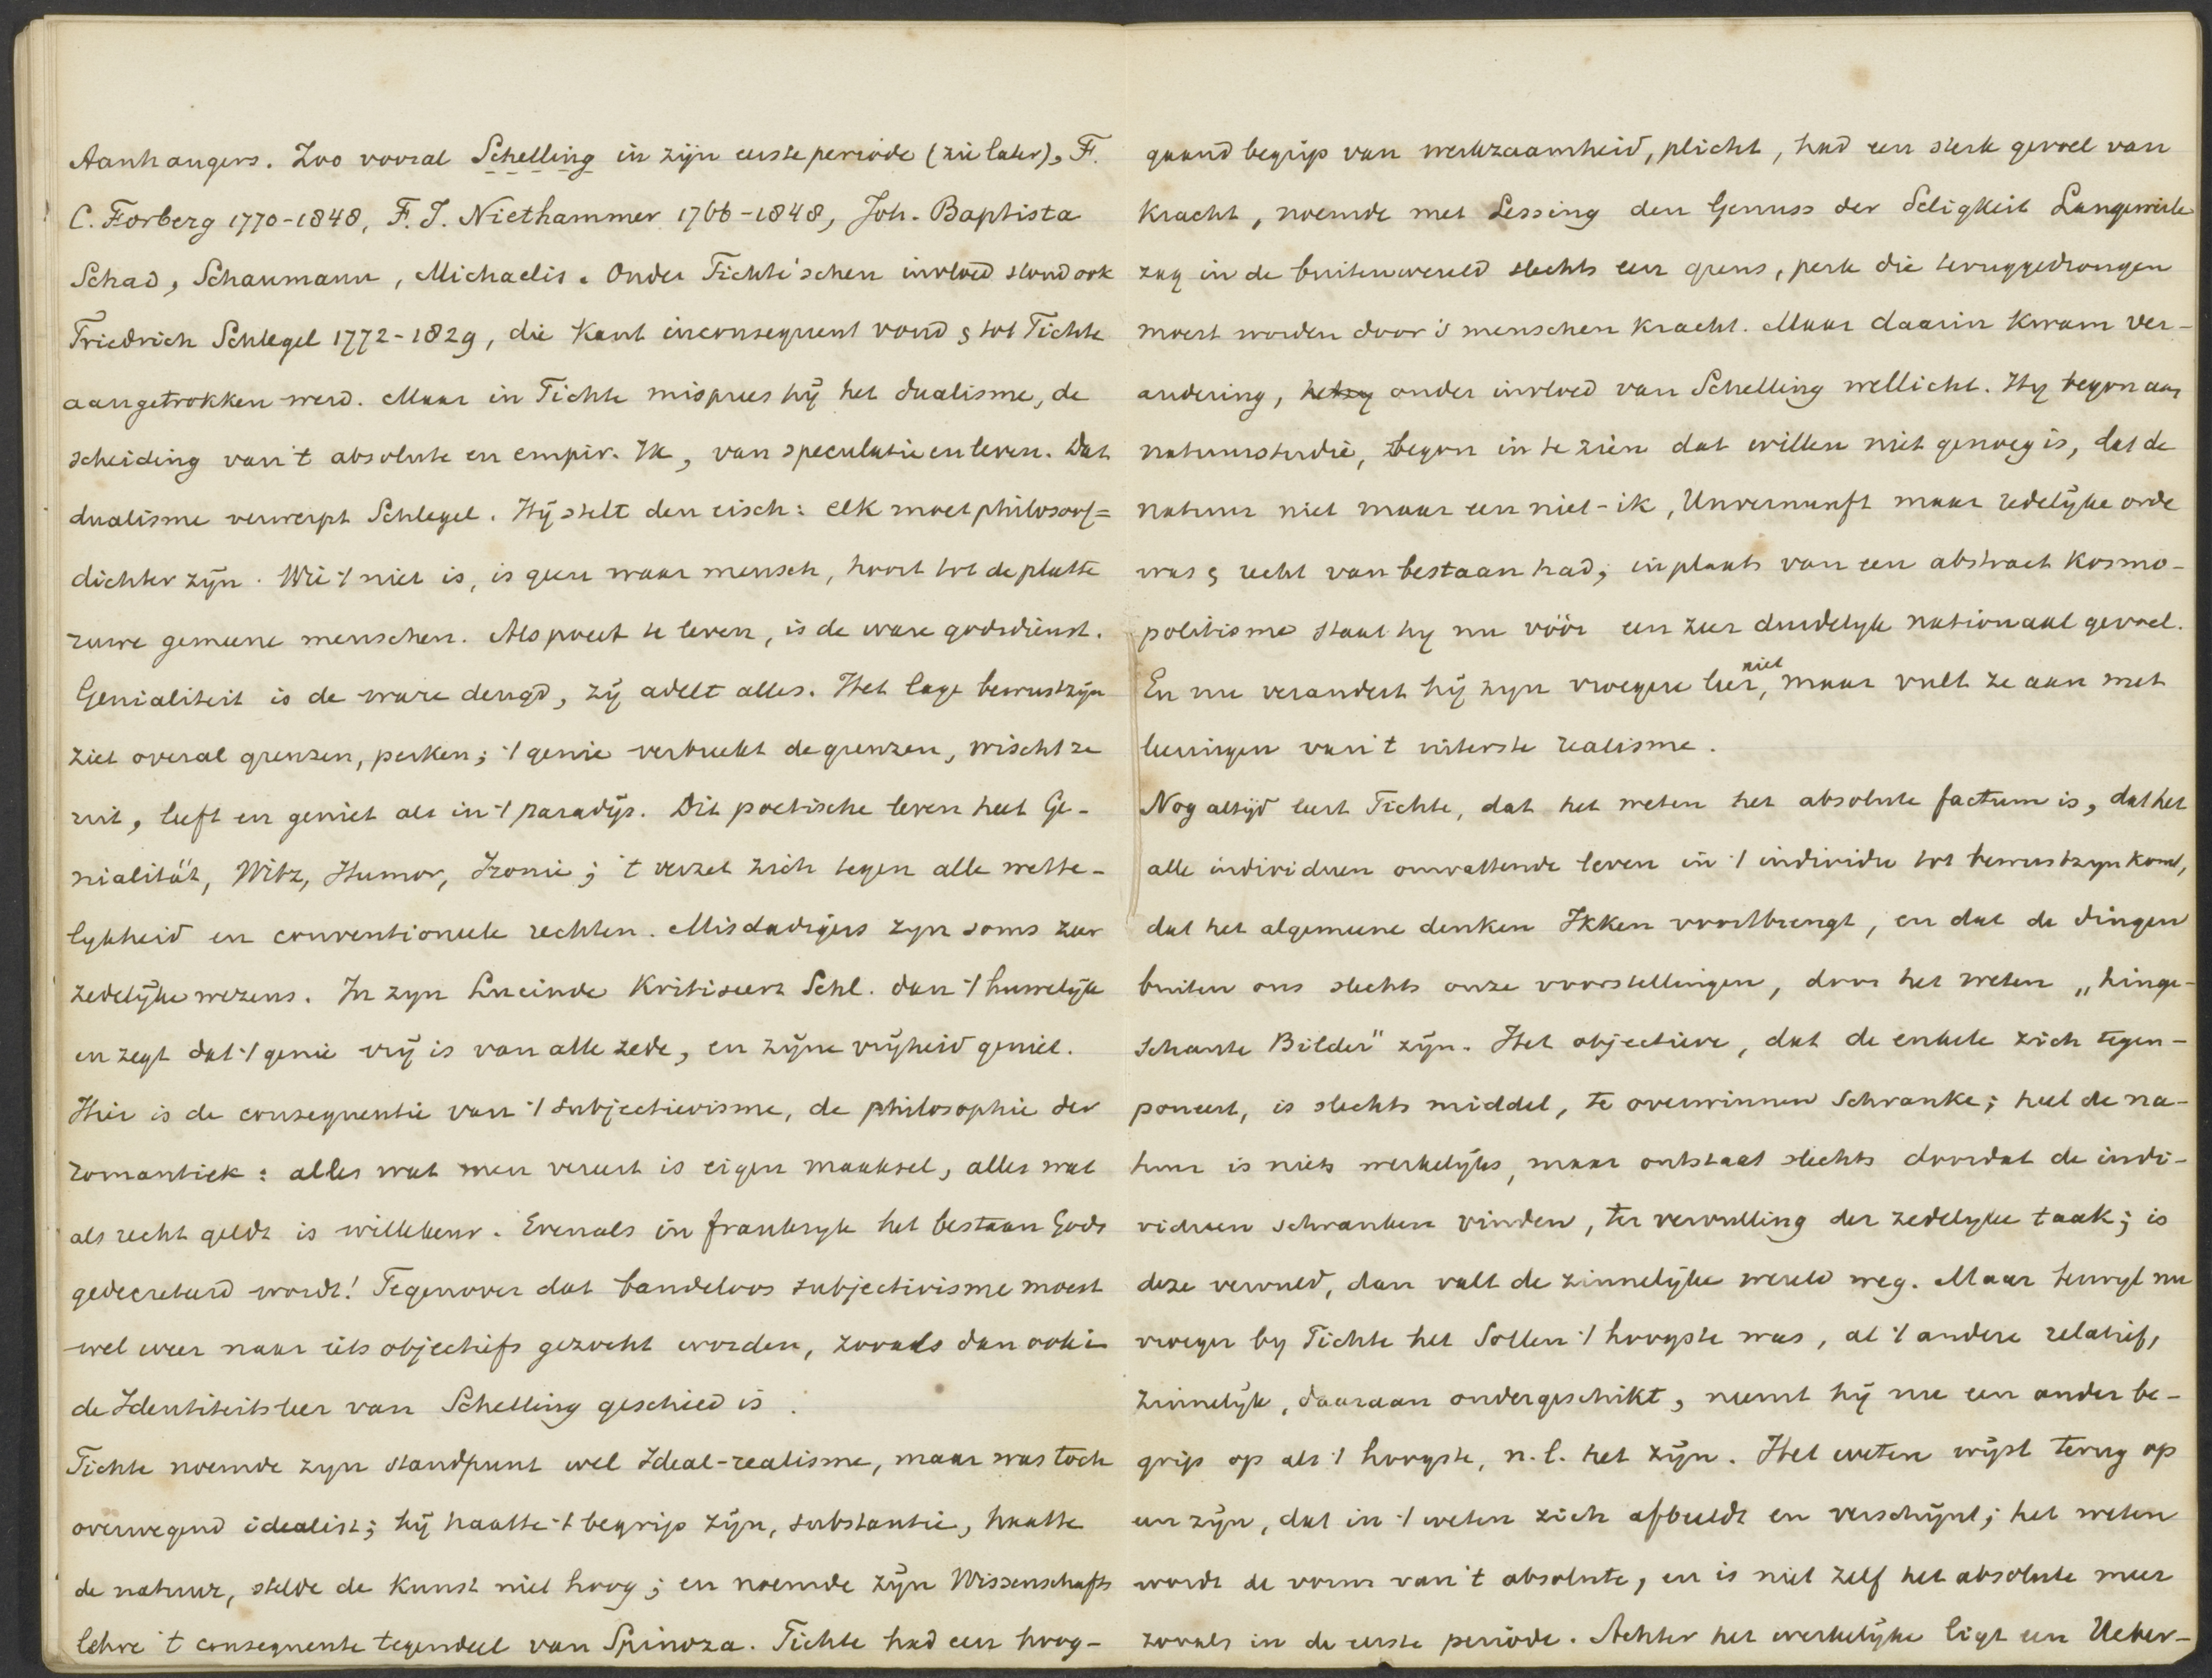 Aanhangers. Zoo vooral Schelling in zijn eerste periode (zie later), F.
C. Forberg 1770-1848, F. J. Niethammer 1766-1848, Joh. Baptista
Schad, Schaumann, Michaelis. Onder Fichte'schen invloed stond ook
Friedrich Schlegel 1772-1829, die Kant inconsequent vond & tot Fichte
aangetrokken werd. Maar in Fichte misprees hij het dualisme, de
scheiding van 't absolute en empir. Ik, van speculatie en leven. Dat
dualisme verwerpt Schlegel. Hij stelt den eisch: elk moet philosoof=
dichter zijn. Wie 't niet is, is geen waar mensch, hoort tot de platte
ruwe gemeene menschen. Als poëet te leven, is de ware godsdienst.
Genialiteit is de ware deugd, zij adelt alles. Het lage bewustzijn
ziet overal grenzen, perken; 't genie verbreekt de grenzen, wischt ze
uit, leeft en geniet als in 't paradijs. Dit poetische leven heet Ge-
nialität, Witz, Humor, Ironie; 't verzet zich tegen alle wette-
lykheid en conventioneele rechten. Misdadigers zyn soms zeer
zedelijke wezens. In zyn Lucinde kritiseert Schl. dan 't huwelijk
en zegt dat 't genie vrij is van alle zede, en zijne vrijheid geniet.
Hier is de consequentie van 't subjectivisme, de philosophie der
romantiek: alles wat men vereert is eigen maaksel, alles wat
als recht geldt is willekeur. Evenals in frankryk het bestaan Gods
gedecreteerd wordt! Tegenover dat bandeloos subjectivisme moest
wel weer naar iets objectiefs gezocht worden, zooals dan ook in
de Identiteitsleer van Schelling geschied is.
Fichte noemde zyn standpunt wel Ideal-realisme, maar was toch
overwegend idealist; hij haatte 't begrip zijn, substantie, haatte
de natuur, stelde de kunst niet hoog; en noemde zijn Wissenschafts
lehre 't consequente tegendeel van Spinoza. Fichte had een hoog-
gaand begrip van werkzaamheid, plicht, had een sterk gevoel van
kracht, noemde met Lessing den Genuss der Seligkeit Langeweile
zag in de buitenwereld slechts een grens, perk die teruggedrongen
moest worden door 's menschen kracht. Maar daarin kwam ver-
andering, onder invloed van Schelling wellicht. Hy begon aan
natuurstudie, begon in te zien dat willen niet genoeg is, dat de
natuur niet maar een niet-ik, Unvernunft maar redelijke orde
was & recht van bestaan had; in plaats van een abstract kosmo-
politisme staat hy nu vóór een zeer duidelyk nationaal gevoel.
En nu verandert hij zyn vroegere leer niet, maar vult ze aan met
leeringen van 't uiterste realisme.
Nog altijd leert Fichte, dat het weten het absolute factum is, dat het
alle individuen omvattende leven in 't individu tot bewustzyn komt,
dat het algemeene denken Ikken voortbrengt, en dat de dingen
buiten ons slechts onze voorstellingen, door het weten „hinge-
schaute Bilder" zijn. Het objectieve, dat de enkele zich tegen-
poneert, is slechts middel, te overwinnen Schranke; heel de na-
tuur is niets werkelijks, maar ontstaat slechts doordat de indi-
viduen schranken vinden, ter vervulling der zedelyke taak; is
deze vervuld, dan valt de zinnelijke wereld weg. Maar terwyl nu
vroeger by Fichte het Sollen 't hoogste was, al 't andere relatief,
zinnelijk, daaraan ondergeschikt, neemt hij nu een ander be-
grip op als 't hoogste, n.l. het zijn. Het weten wijst terug op
een zijn, dat in 't weten zich afbeeldt en verschijnt; het weten
wordt de vorm van 't absolute, en is niet zelf het absolute meer
zooals in de eerste periode. Achter het werkelijke ligt een Ueber-